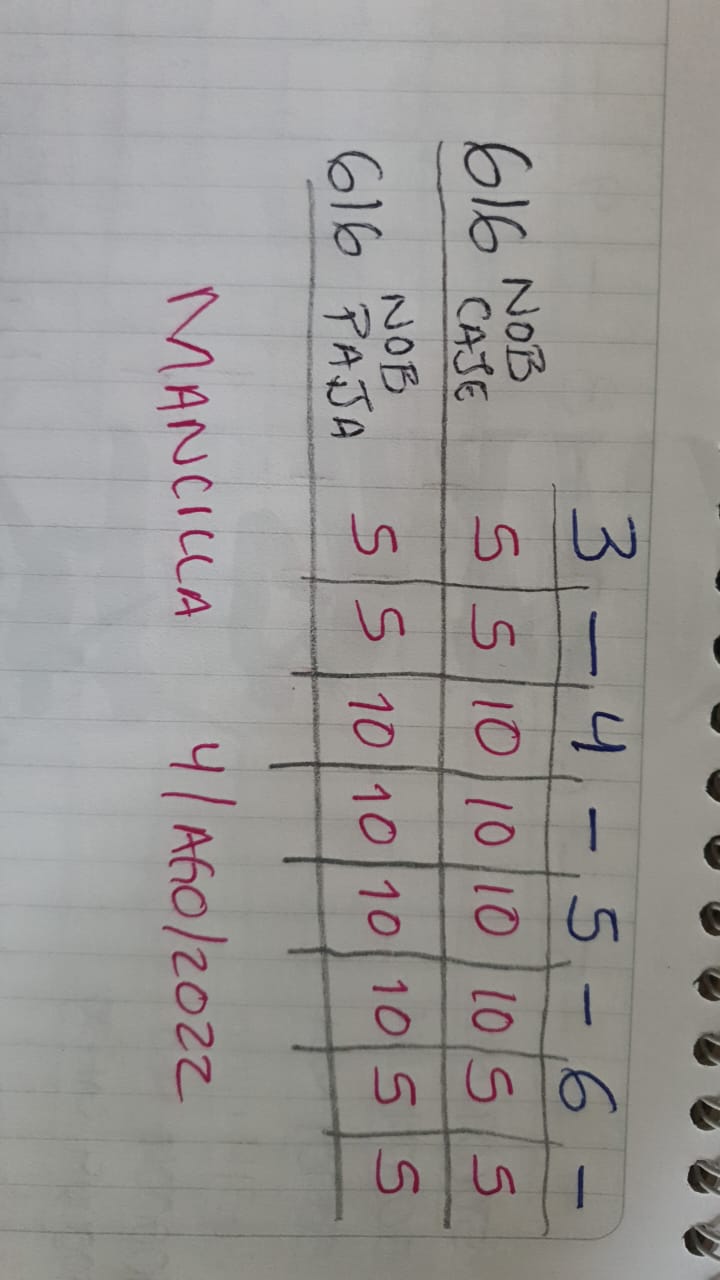 3 - 4 - 5 - 6 -
616 NOB CAJE 5 5 10 10 10 10 5 5
616 NOB PAJA 5 5 10 10 10 10 5 5
MANCILLA 4/AGO/2022